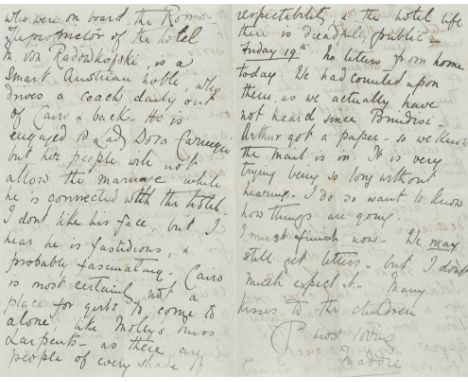 who were on board the Roma.
The proprietor of the hotel
M. von Radowkofski, is a
Smart Austrian noble, who
drives a coach daily out
of Cairo & back. He is
engaged to Lady Dora Carnegie
but her people will not
allow the marriage while
he is connected with the hotel.
I dont like his face but I
hear he is fastidious, &
probably fascinating. Cairo
is most certainly not a
place for girls to come to
alone, like Molly's
Larpents - as there are
people of every shade of
respectability & the hotel life
there is dreadfully public -
Friday 19th. No letters from home
today. We had counted upon
them, as we actually have
not heard since Brindisi -
Arthur got a paper - so we know
the mail is in. It is very
trying being so long without
hearing. I do so want to know
how things are going.
I must finish now. We may
still get letters - but I dont
much expect it. Many
kisses to the children
loving